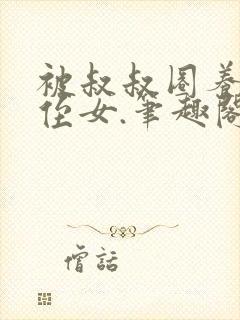 被叔叔圈养
侄女.笔趣阁
僧話